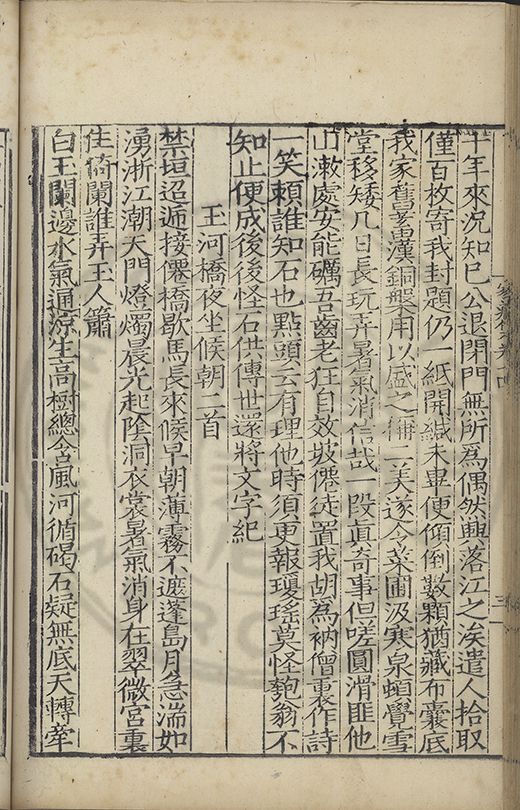 十年來況知已公退閉門無所為偶然興落江之涘遣人拾取
僅百枚寄我封題仍一紙開緘未畢便傾倒數顆猶藏布囊底
我家舊蓄漢銅盤用以盛之稱二美遂令菜圃汲寒泉頓覺雪
堂移矮几日長玩弄暑氣消信哉一段眞奇事但嗟圓滑匪他
山漱處安能礪吾齒老狂自效坡僊徒置我胡為衲僧裏作詩
一笑賴誰知石也點頭云有理他時須更報瓊瑤莫怪匏翁不
知止便成後後怪石供傳世還將文字紀
王河橋夜坐候朝二首
禁垣迢遞接僊橋歇馬長來候早朝薄霧不遮蓬島月急湍如
湧浙江潮天門燈燭晨光起陰洞衣裳暑氣消身在翠微宮裏
住倚闌誰弄玉人簫
白玉闌邊水氣通凉生高樹總含風河循碣石疑無底天轉牽